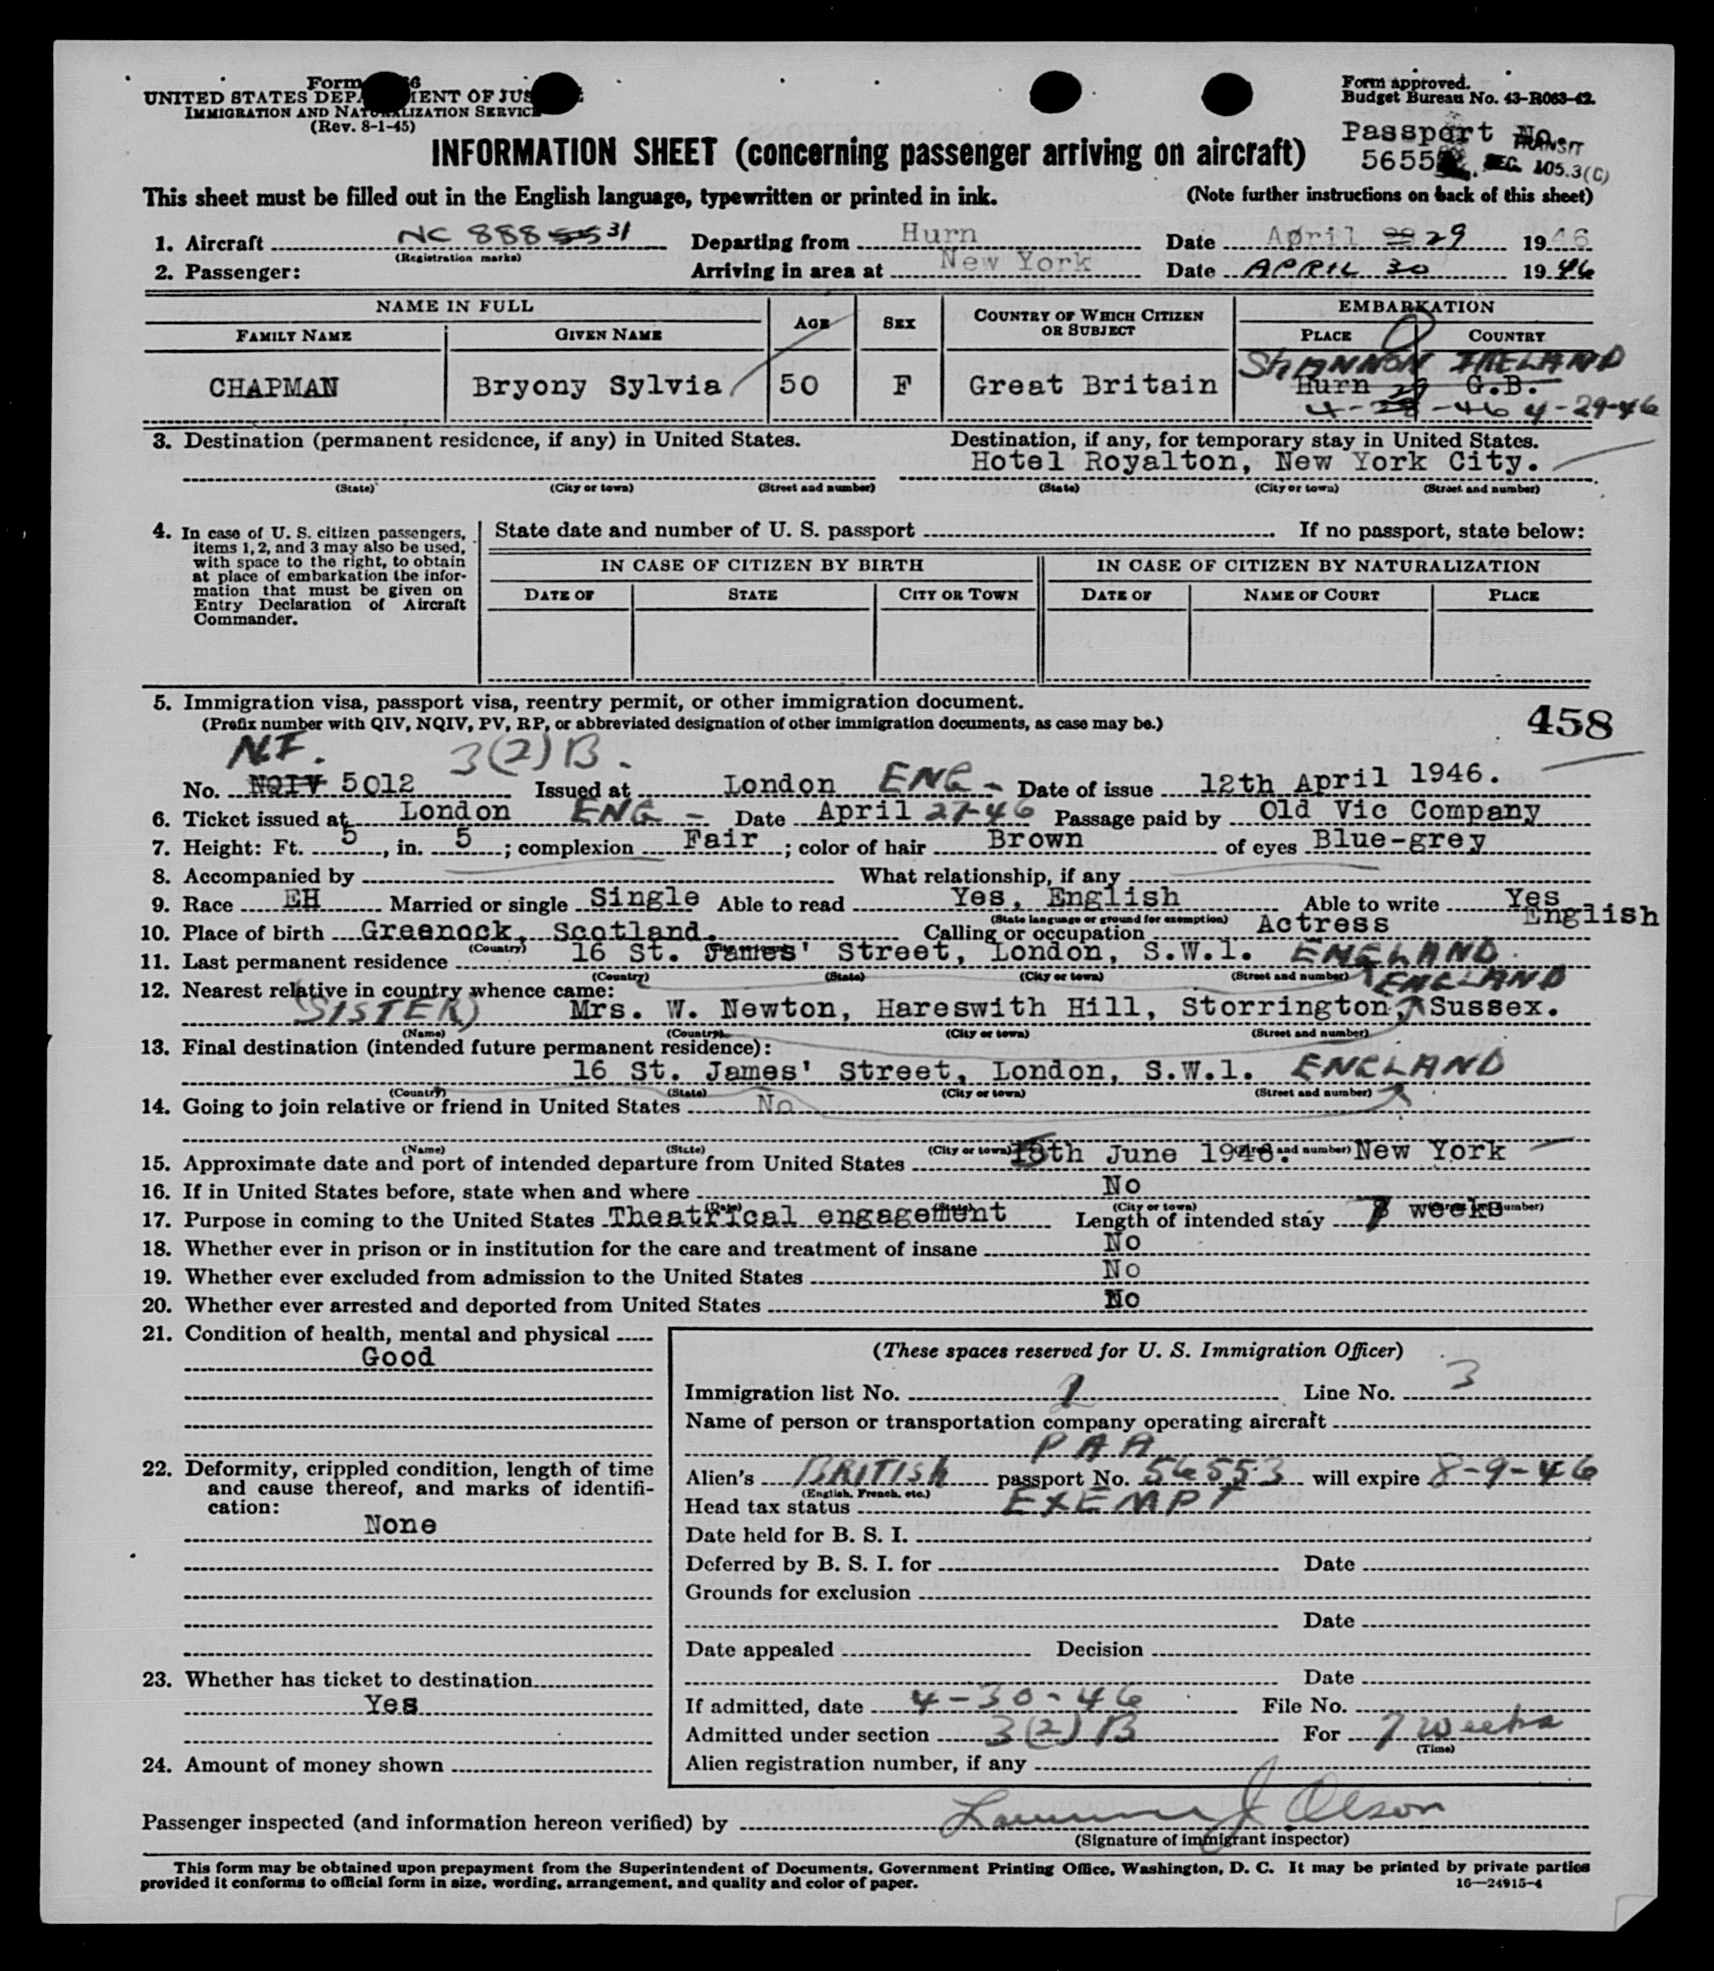 Form 66
UNITED STATES DEPARTMENT OF JUSTICE
IMMIGRATION AND NATURALIZATION SERVICE
(Rev. 8-1-45)
Form approved.
Budget Bureau No. 43-R063-42.
Passport No.
5655
TRANSIT
SEC. 105.3(C)
INFORMATION SHEET (concerning passenger arriving on aircraft)
This sheet must be filled out in the English language, typewritten or printed in ink. (Note further instructions on back of this sheet)
1. Aircraft NC 888 55 31 Departing from Hurn Date April 29 1946
(Registration marks)
2. Passenger: Arriving in area at New York Date APRIL 30 1946
NAME IN FULL AGE SEX COUNTRY OF WHICH CITIZEN OR SUBJECT EMBARKATION
FAMILY NAME GIVEN NAME PLACE COUNTRY
SHANNON IRELAND
CHAPMAN Bryony Sylvia 50 F Great Britain Hurn G.B.
4-29-46 4-29-46
3. Destination (permanent residence, if any) in United States. Destination, if any, for temporary stay in United States.
Hotel Royalton, New York City.
(State) (City or town) (Street and number) (State) (City or town) (Street and number)
4. In case of U. S. citizen passengers, items 1, 2, and 3 may also be used, with space to the right, to obtain at place of embarkation the information that must be given on Entry Declaration of Aircraft Commander.
State date and number of U. S. passport If no passport, state below:
IN CASE OF CITIZEN BY BIRTH IN CASE OF CITIZEN BY NATURALIZATION
DATE OF STATE CITY OR TOWN DATE OF NAME OF COURT PLACE
5. Immigration visa, passport visa, reentry permit, or other immigration document.
(Prefix number with QIV, NQIV, PV, RP, or abbreviated designation of other immigration documents, as case may be.)
458
N.I. 3(2)B.
No. NQIV 5012 Issued at London ENG - Date of issue 12th April 1946.
6. Ticket issued at London ENG - Date April 27-46 Passage paid by Old Vic Company
7. Height: Ft. 5, in. 5; complexion Fair; color of hair Brown of eyes Blue-grey
8. Accompanied by What relationship, if any
9. Race EH Married or single Single Able to read Yes, English Able to write Yes English
(State language or ground for exemption)
10. Place of birth Greenock, Scotland. Calling or occupation Actress
(Country) (City or town)
11. Last permanent residence 16 St. James' Street, London, S.W.1. ENGLAND
(Country) (State) (City or town) (Street and number)
12. Nearest relative in country whence came: ENGLAND
(SISTER) Mrs. W. Newton, Hareswith Hill, Storrington, Sussex.
(Name) (Country) (City or town) (Street and number)
13. Final destination (intended future permanent residence):
16 St. James' Street, London, S.W.1. ENGLAND
(Country) (State) (City or town) (Street and number)
14. Going to join relative or friend in United States No
(Name) (State) (City or town) (Street and number)
15. Approximate date and port of intended departure from United States 15th June 1946. New York
16. If in United States before, state when and where No
(Date) (State) (City or town) (Street and number)
17. Purpose in coming to the United States Theatrical engagement Length of intended stay 7 weeks
18. Whether ever in prison or in institution for the care and treatment of insane No
19. Whether ever excluded from admission to the United States No
20. Whether ever arrested and deported from United States No
21. Condition of health, mental and physical
Good
22. Deformity, crippled condition, length of time and cause thereof, and marks of identification:
None
23. Whether has ticket to destination
Yes
24. Amount of money shown
(These spaces reserved for U. S. Immigration Officer)
Immigration list No. 1 Line No. 3
Name of person or transportation company operating aircraft
PAA
Alien's BRITISH passport No. 56553 will expire 8-9-46
(English, French, etc.)
Head tax status EXEMPT
Date held for B. S. I.
Deferred by B. S. I. for Date
Grounds for exclusion
Date
Date appealed Decision
Date
If admitted, date 4-30-46 File No.
Admitted under section 3(2)B For 7 weeks
(Time)
Alien registration number, if any
Passenger inspected (and information hereon verified) by Lawrence J Olson
(Signature of immigrant inspector)
This form may be obtained upon prepayment from the Superintendent of Documents, Government Printing Office, Washington, D. C. It may be printed by private parties
provided it conforms to official form in size, wording, arrangement, and quality and color of paper. 16—24915-4